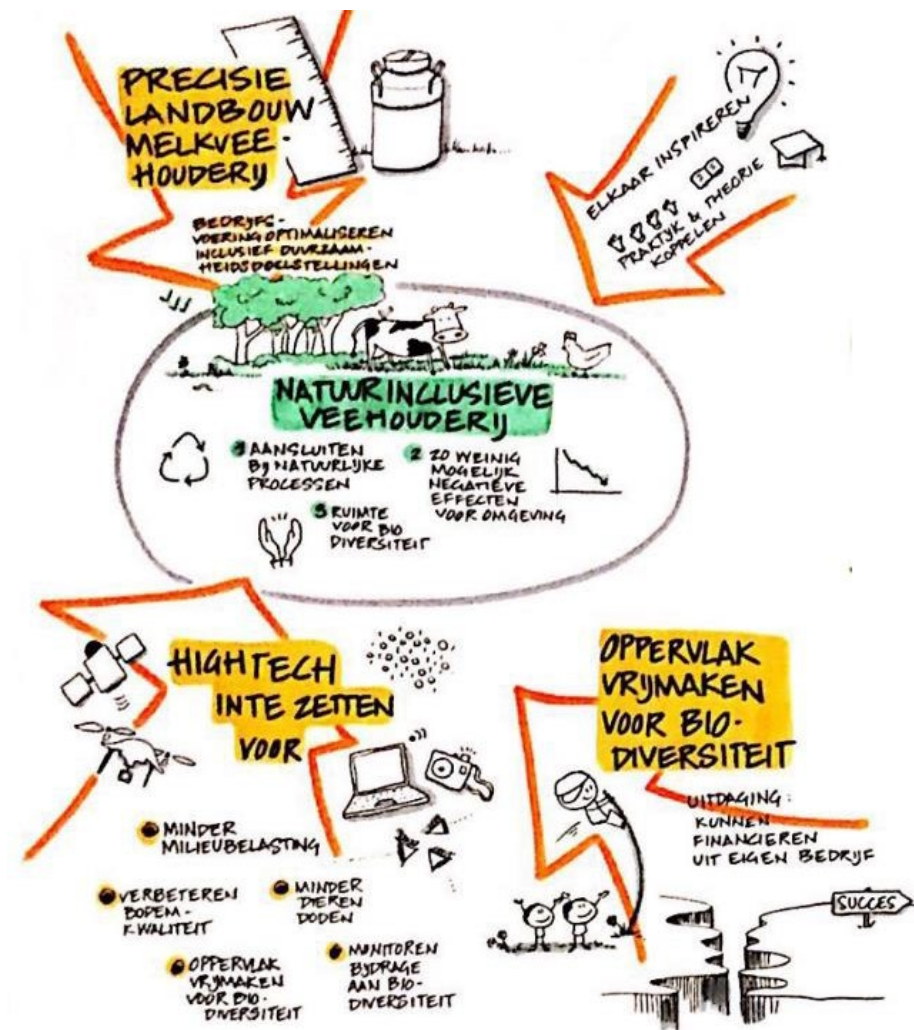 PRECISIE
LANDBOUW
MELKVEE-
HOUDERIJ
BEDRIJFS-
VOERING OPTIMALISEREN
INCLUSIEF DUURZAAM-
HEIDSDOELSTELLINGEN
ELKAAR INSPIREREN
PRAKTIJK & THEORIE
KOPPELEN
NATUURINCLUSIEVE
VEEHOUDERIJ
1 AANSLUITEN
BIJ NATUURLIJKE
PROCESSEN
2 ZO WEINIG
MOGELIJK
NEGATIEVE
EFFECTEN
VOOR OMGEVING
3 RUIMTE
VOOR BIO
DIVERSITEIT
HIGHTECH
IN TE ZETTEN
VOOR
MINDER
MILIEUBELASTING
VERBETEREN
BODEM-
KWALITEIT
MINDER
DIEREN
DODEN
OPPERVLAK
VRIJMAKEN
VOOR BIO-
DIVERSITEIT
MONITOREN
BIJDRAGE
AAN BIO-
DIVERSITEIT
OPPERVLAK
VRIJMAKEN
VOOR BIO-
DIVERSITEIT
UITDAGING:
KUNNEN
FINANCIEREN
UIT EIGEN BEDRIJF
SUCCES